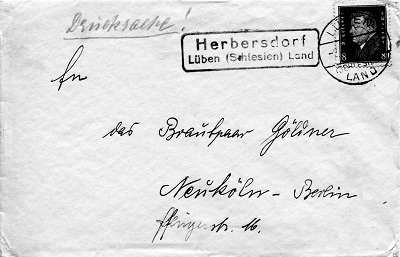 Drucksache!
Herbersdorf
Lüben (Schlesien) Land
8 8
LAND
An
das Brautpaar Göldner
Neuköln - Berlin
str. 16.